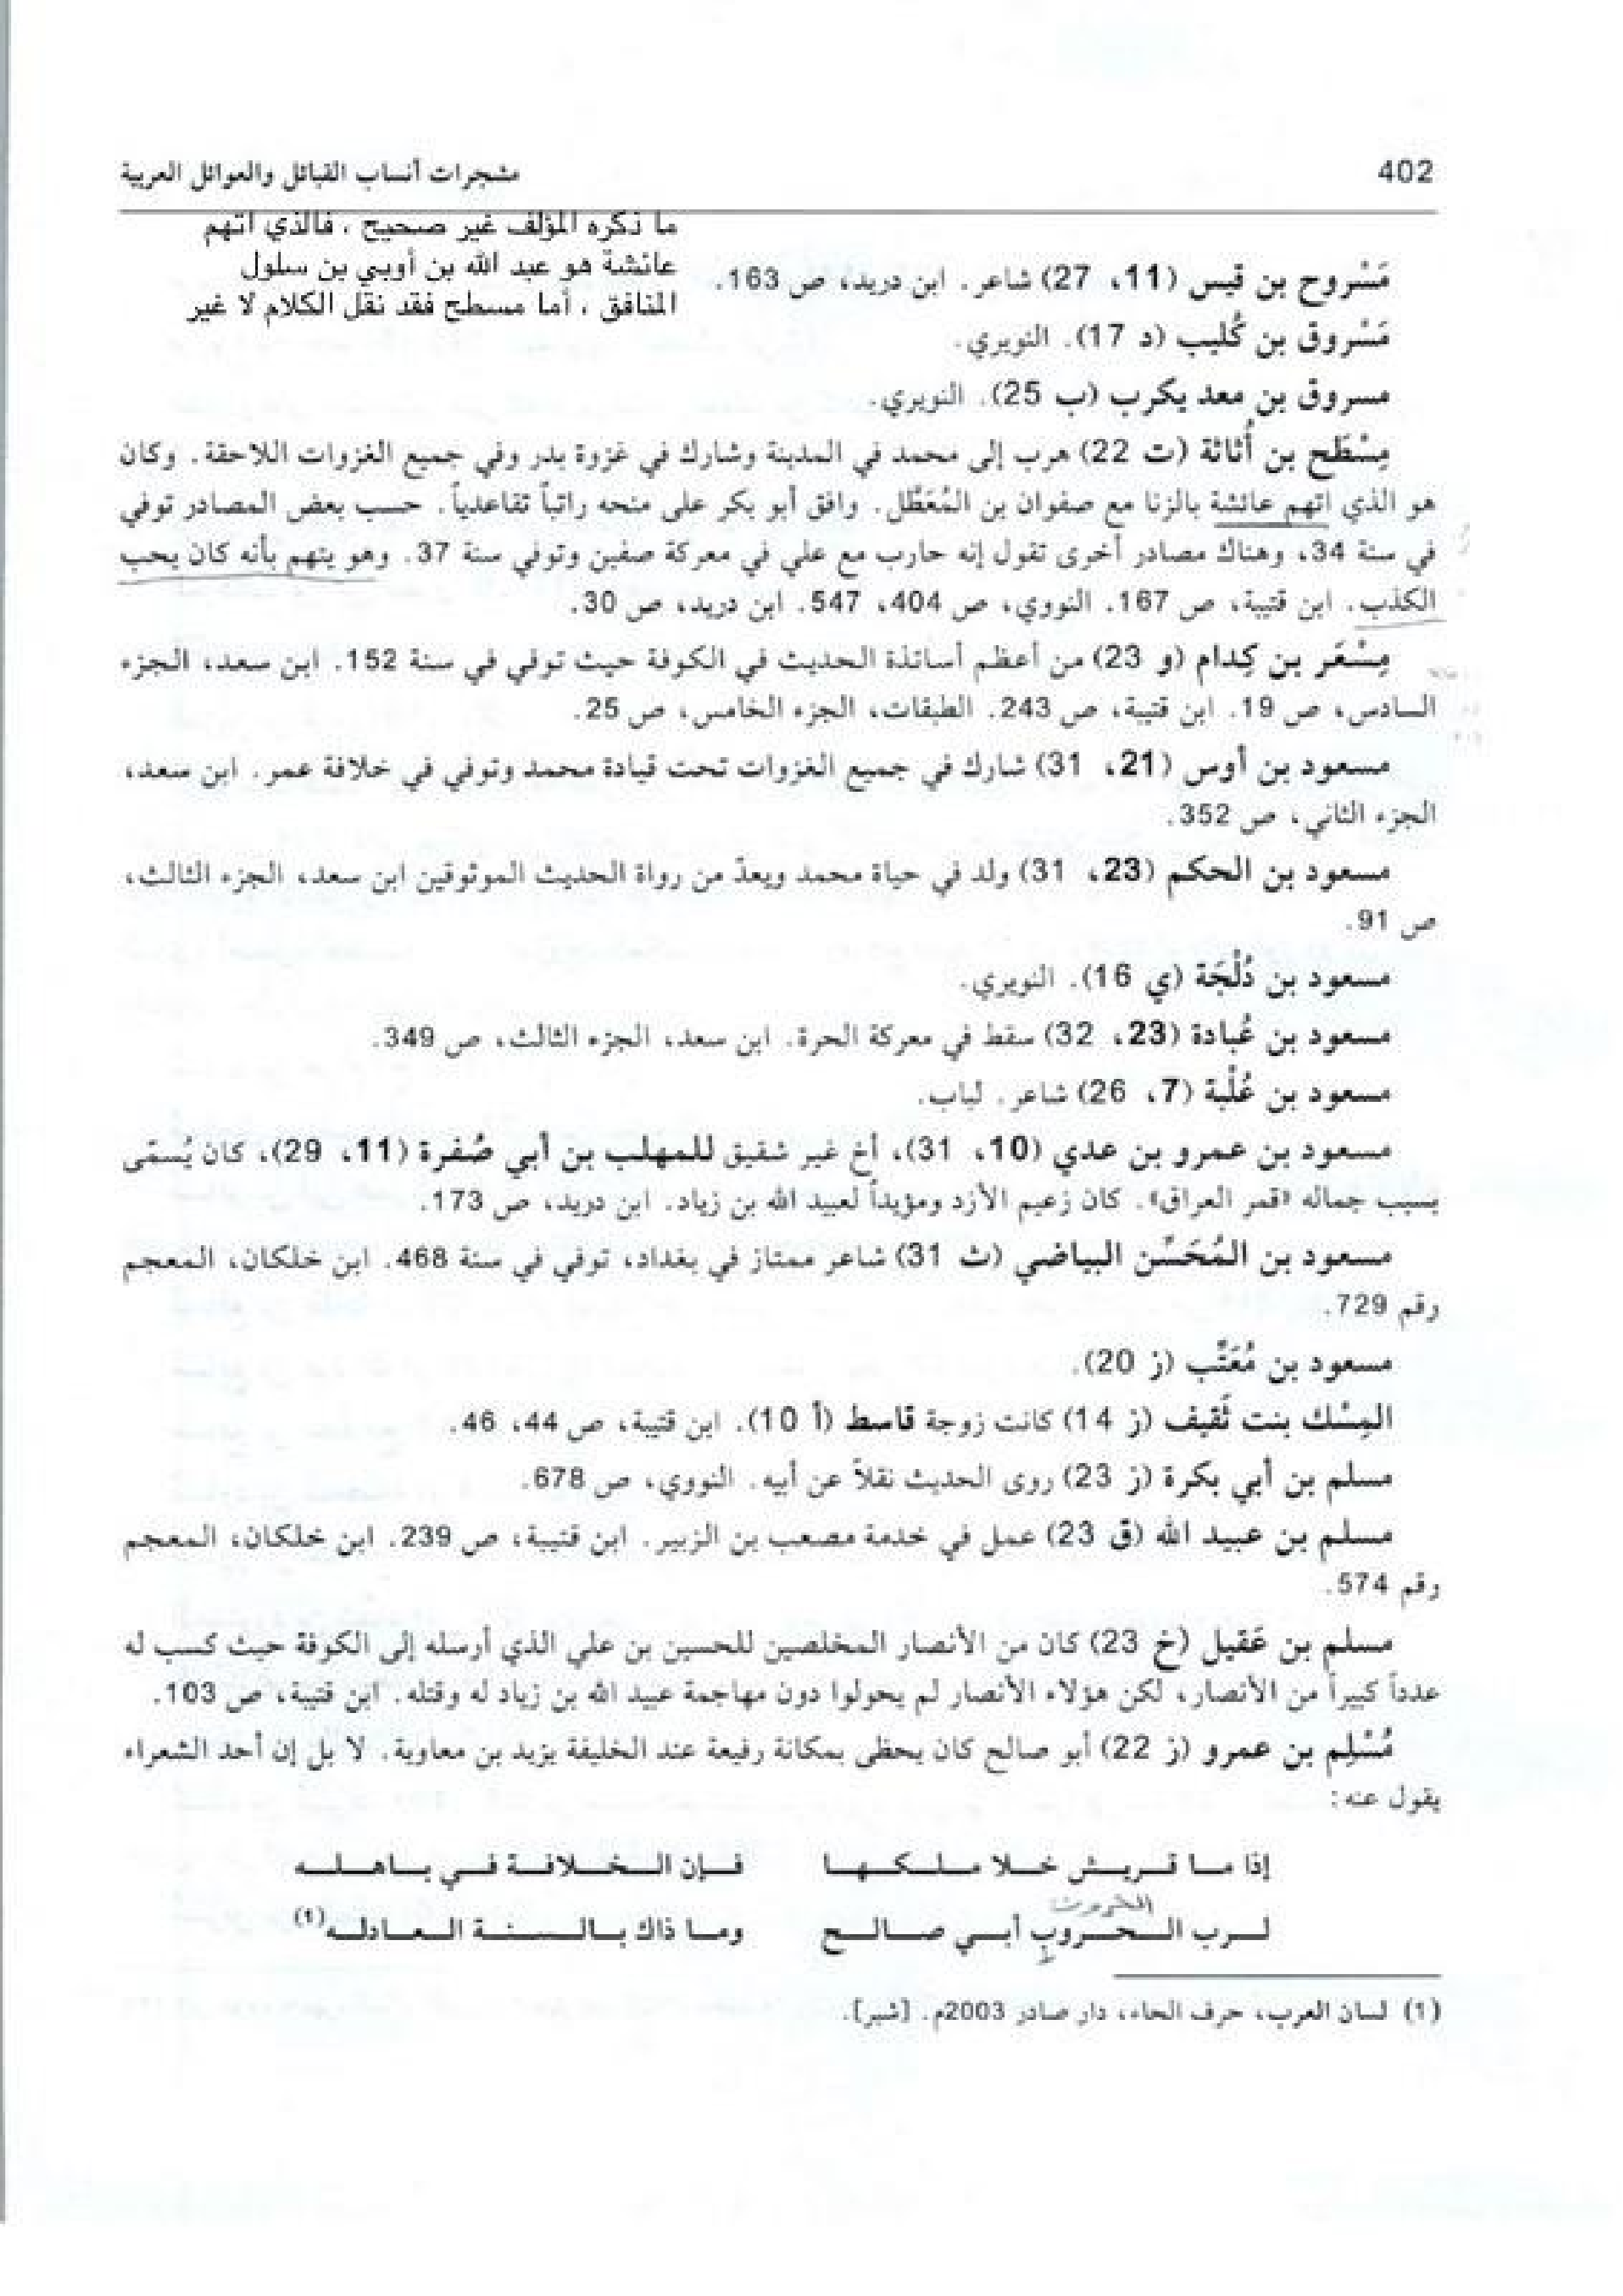 402
مشجرات أنساب القبائل والعوائل العربية
ما ذكره المؤلف غير صحيح ، فالذي اتهم
عائشة هو عبد الله بن أوبي بن سلول
المنافق ، أما مسطح فقد نقل الكلام لا غير
مَسْروح بن قيس (11، 27) شاعر. ابن دريد، ص 163.
مَسْروق بن كُليب (د 17). النويري.
مسروق بن معد يكرب (ب 25). النويري.
مِسْطَح بن أُثاثة (ت 22) هرب إلى محمد في المدينة وشارك في غزوة بدر وفي جميع الغزوات اللاحقة. وكان
هو الذي اتهم عائشة بالزنا مع صفوان بن المُعَطَّل. وافق أبو بكر على منحه راتباً تقاعدياً. حسب بعض المصادر توفي
في سنة 34، وهناك مصادر أخرى تقول إنه حارب مع علي في معركة صفين وتوفي سنة 37. وهو يتهم بأنه كان يحب
الكذب. ابن قتيبة، ص 167. النووي، ص 404، 547. ابن دريد، ص 30.
مِسْعَر بن كِدام (و 23) من أعظم أساتذة الحديث في الكوفة حيث توفي في سنة 152. ابن سعد، الجزء
السادس، ص 19. ابن قتيبة، ص 243. الطبقات، الجزء الخامس، ص 25.
مسعود بن أوس (21، 31) شارك في جميع الغزوات تحت قيادة محمد وتوفي في خلافة عمر. ابن سعد،
الجزء الثاني، ص 352.
مسعود بن الحكم (23، 31) ولد في حياة محمد ويعدّ من رواة الحديث الموثوقين ابن سعد، الجزء الثالث،
ص 91.
مسعود بن دُلْجَة (ي 16). النويري.
مسعود بن عُبادة (23، 32) سقط في معركة الحرة. ابن سعد، الجزء الثالث، ص 349.
مسعود بن عُلْبة (7، 26) شاعر. لباب.
مسعود بن عمرو بن عدي (10، 31)، أخ غير شقيق للمهلب بن أبي صُفرة (11، 29)، كان يُسمّى
بسبب جماله «قمر العراق». كان زعيم الأزد ومؤيداً لعبيد الله بن زياد. ابن دريد، ص 173.
مسعود بن المُحَسِّن البياضي (ث 31) شاعر ممتاز في بغداد، توفي في سنة 468. ابن خلكان، المعجم
رقم 729.
مسعود بن مُعَتِّب (ز 20).
المِسْك بنت ثَقيف (ز 14) كانت زوجة قاسط (أ 10). ابن قتيبة، ص 44، 46.
مسلم بن أبي بكرة (ز 23) روى الحديث نقلاً عن أبيه. النووي، ص 678.
مسلم بن عبيد الله (ق 23) عمل في خدمة مصعب بن الزبير. ابن قتيبة، ص 239. ابن خلكان، المعجم
رقم 574.
مسلم بن عَقيل (خ 23) كان من الأنصار المخلصين للحسين بن علي الذي أرسله إلى الكوفة حيث كسب له
عدداً كبيراً من الأنصار، لكن هؤلاء الأنصار لم يحولوا دون مهاجمة عبيد الله بن زياد له وقتله. ابن قتيبة، ص 103.
مُسْلِم بن عمرو (ز 22) أبو صالح كان يحظى بمكانة رفيعة عند الخليفة يزيد بن معاوية. لا بل إن أحد الشعراء
يقول عنه:
إذا ما قريش خلا ملكها فإن الخلافة في باهله
لرب الحروب أبي صالح وما ذاك بالسنة العادله(1)
(1) لسان العرب، حرف الحاء، دار صادر 2003م. [شبر].